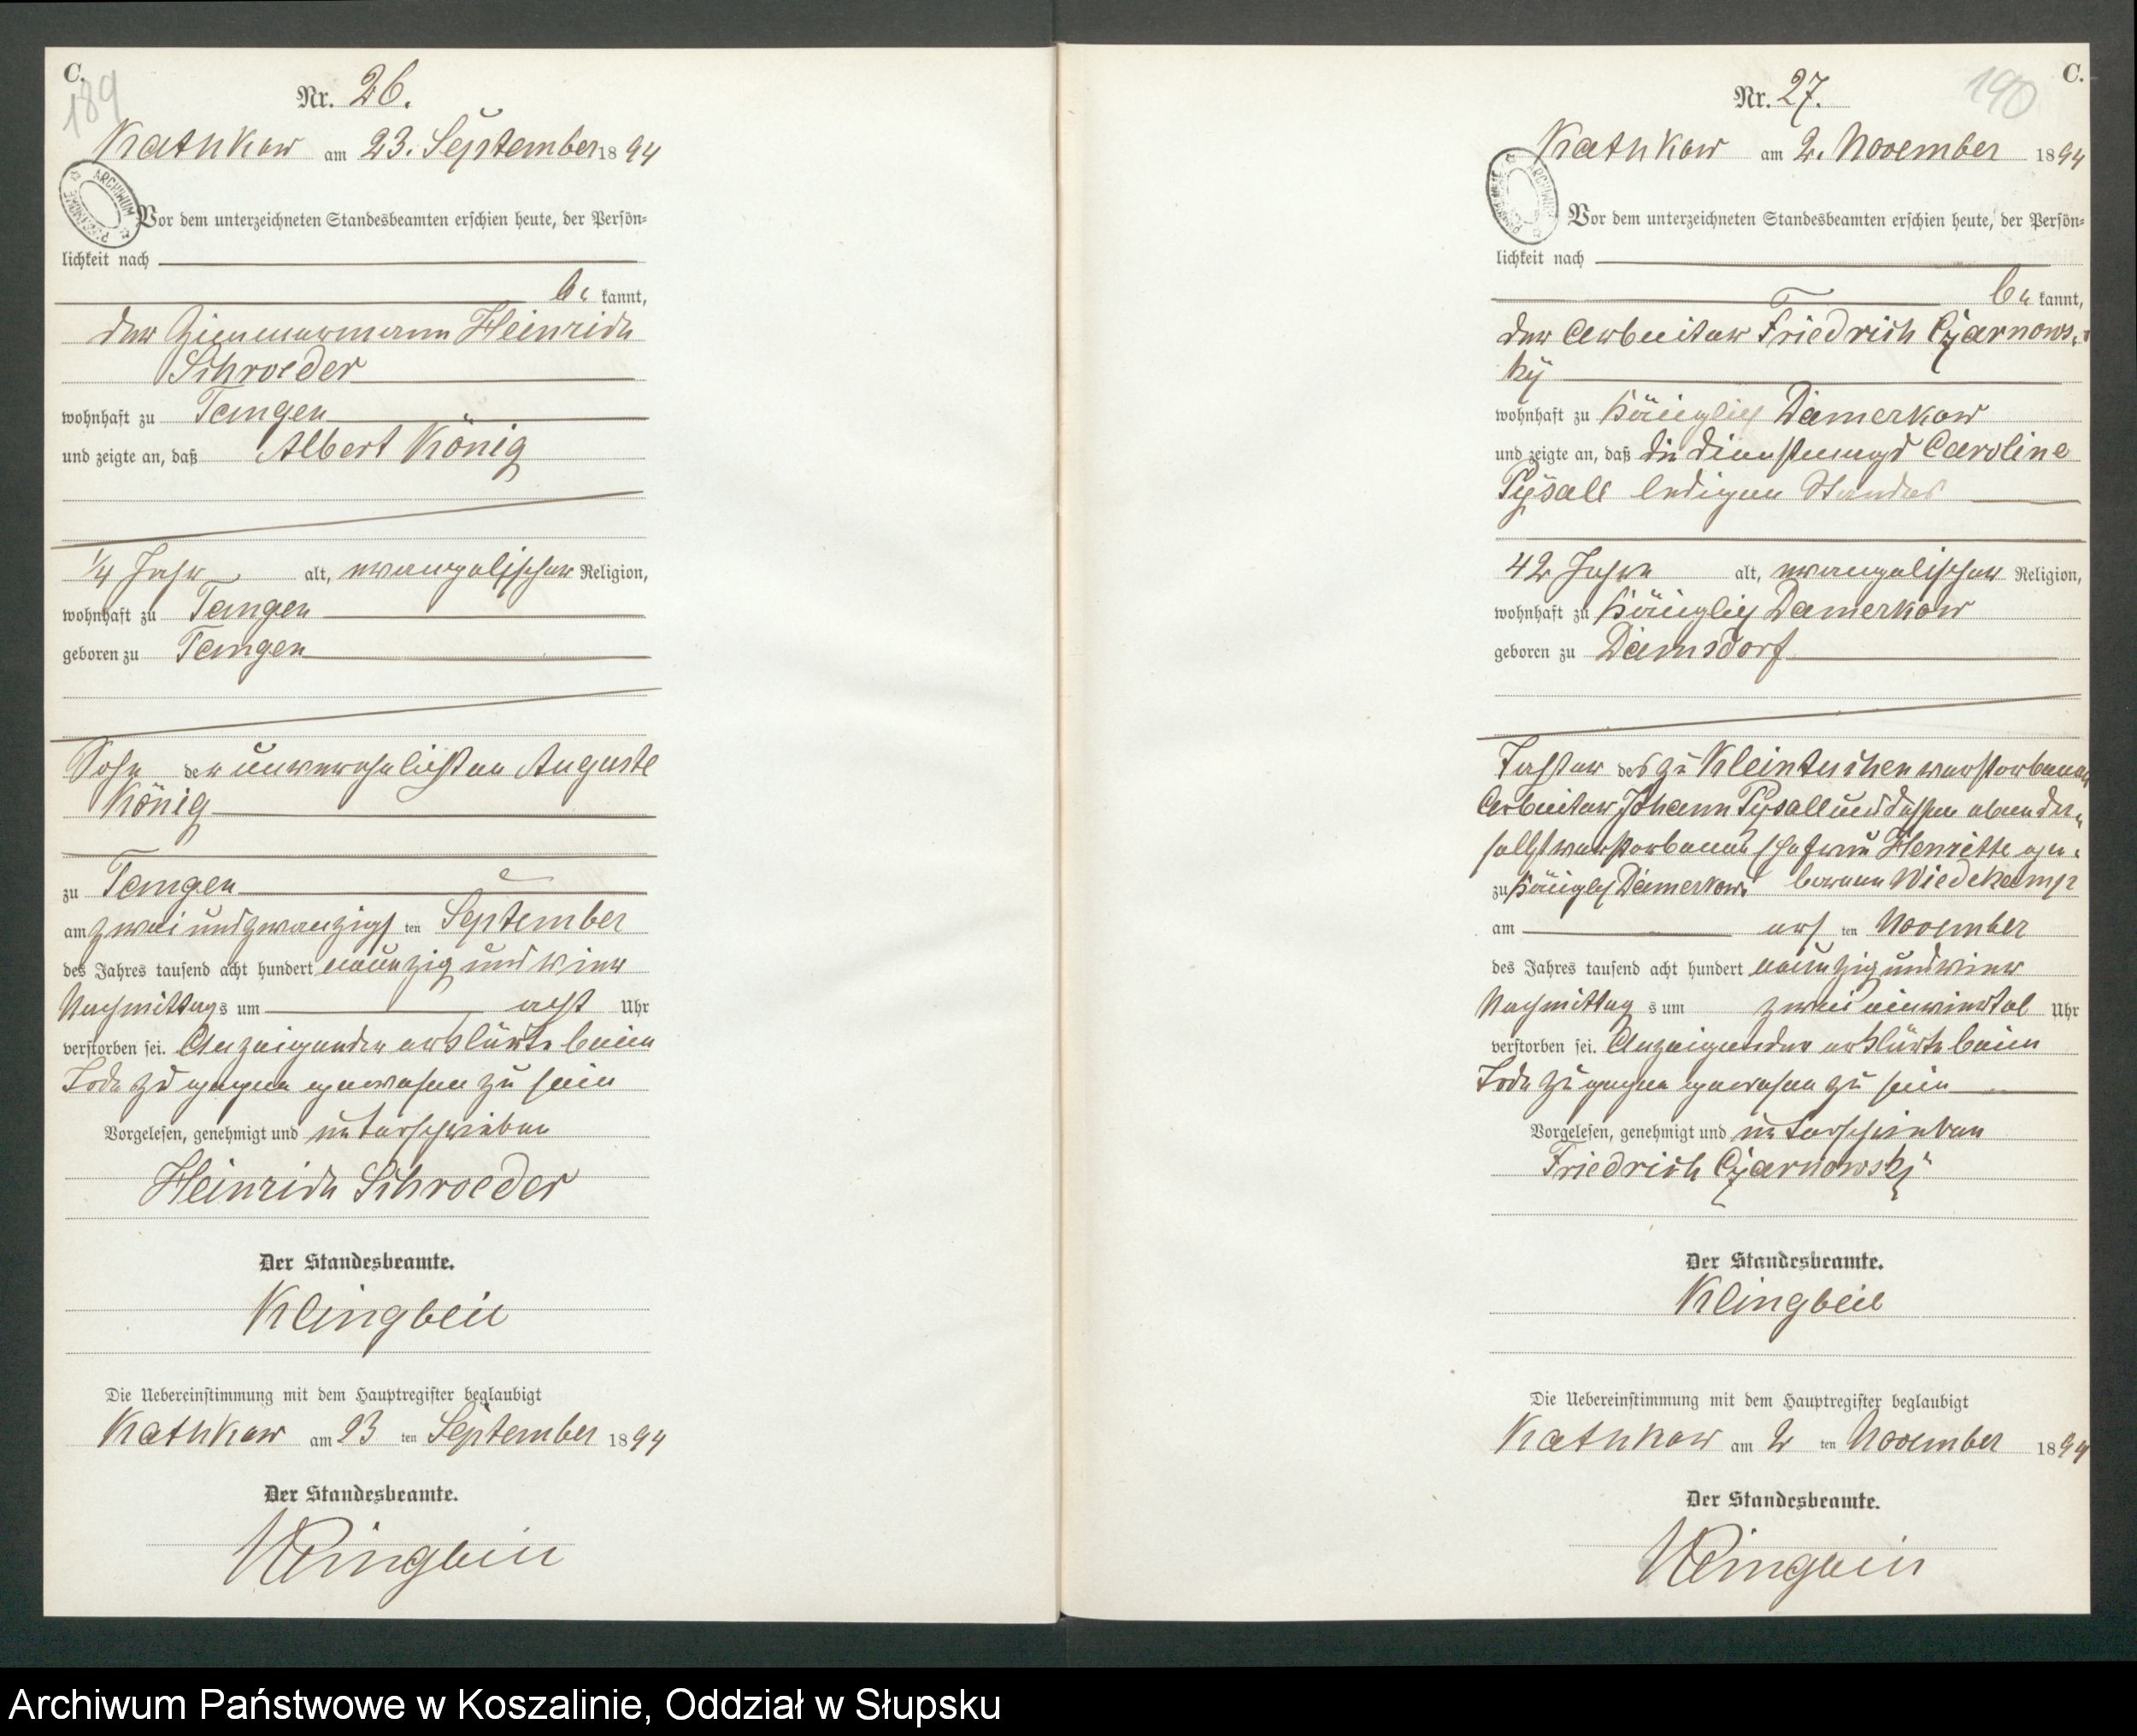 C.
189
Nr. 26.
Kathkow am 23. September 1894
ARCHIWUM PAŃSTWOWE
Vor dem unterzeichneten Standesbeamten erschien heute, der Persön=
lichkeit nach
be kannt,
der Zimmermann Heinrich
Schroeder
wohnhaft zu Tangen
und zeigte an, daß Albert König
1/4 Jahr alt, evangelischer Religion,
wohnhaft zu Tangen
geboren zu Tangen
Sohn der unverehelichten Auguste
König
zu Tangen
am zwei und zwanzigs ten September
des Jahres tausend acht hundert neunzig und vier
Nachmittags um acht Uhr
verstorben sei. Anzeigender erklärte beim
Tode zugegen gewesen zu sein
Vorgelesen, genehmigt und unterschrieben
Heinrich Schroeder
Der Standesbeamte.
Klingbeil
Die Uebereinstimmung mit dem Hauptregister beglaubigt
Kathkow am 23 ten September 1894
Der Standesbeamte.
Klingbeil
C.
190
Nr. 27.
Kathkow am 2. November 1894
ARCHIWUM PAŃSTWOWE
Vor dem unterzeichneten Standesbeamten erschien heute, der Persön=
lichkeit nach
be kannt,
der Arbeiter Friedrich Czarnows-
ky
wohnhaft zu Königlich Damerkow
und zeigte an, daß die Dienstmagd Caroline
Pysall ledigen Standes
42 Jahre alt, evangelischer Religion,
wohnhaft zu Königlich Damerkow
geboren zu Damsdorf
Tochter des zu Kleintuchen verstorbenen
Arbeiter Johann Pysall und dessen ebenda-
selbst verstorbenen Ehefrau Henriette ge-
zu Königlich Damerkow. borenen Wiedekamp
am ers ten November
des Jahres tausend acht hundert neunzig und vier
Nachmittag s um zwei einviertel Uhr
verstorben sei. Anzeigender erklärte beim
Tode zugegen gewesen zu sein
Vorgelesen, genehmigt und unterschrieben
Friedrich Czarnowsky
Der Standesbeamte.
Klingbeil
Die Uebereinstimmung mit dem Hauptregister beglaubigt
Kathkow am 2 ten November 1894
Der Standesbeamte.
Klingbeil
Archiwum Państwowe w Koszalinie, Oddział w Słupsku